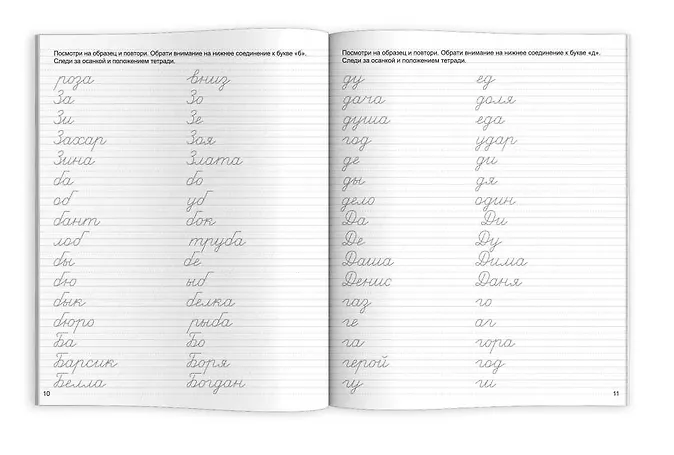 Посмотри на образец и повтори. Обрати внимание на нижнее соединение к букве «б».
Следи за осанкой и положением тетради.
роза вниз
За Зо
Зи Зе
Захар Зоя
Зина Злата
ба бо
об уб
бант бок
лоб труба
бы бе
бю ыб
бык белка
бюро рыба
Ба Бо
Барсик Боря
Белла Богдан
10
Посмотри на образец и повтори. Обрати внимание на нижнее соединение к букве «д».
Следи за осанкой и положением тетради.
ду ед
дача доля
душа еда
год удар
де ди
ды дя
дело один
Да Ди
Де Ду
Даша Дима
Денис Даня
газ го
ге аг
га гора
герой год
гу ги
11